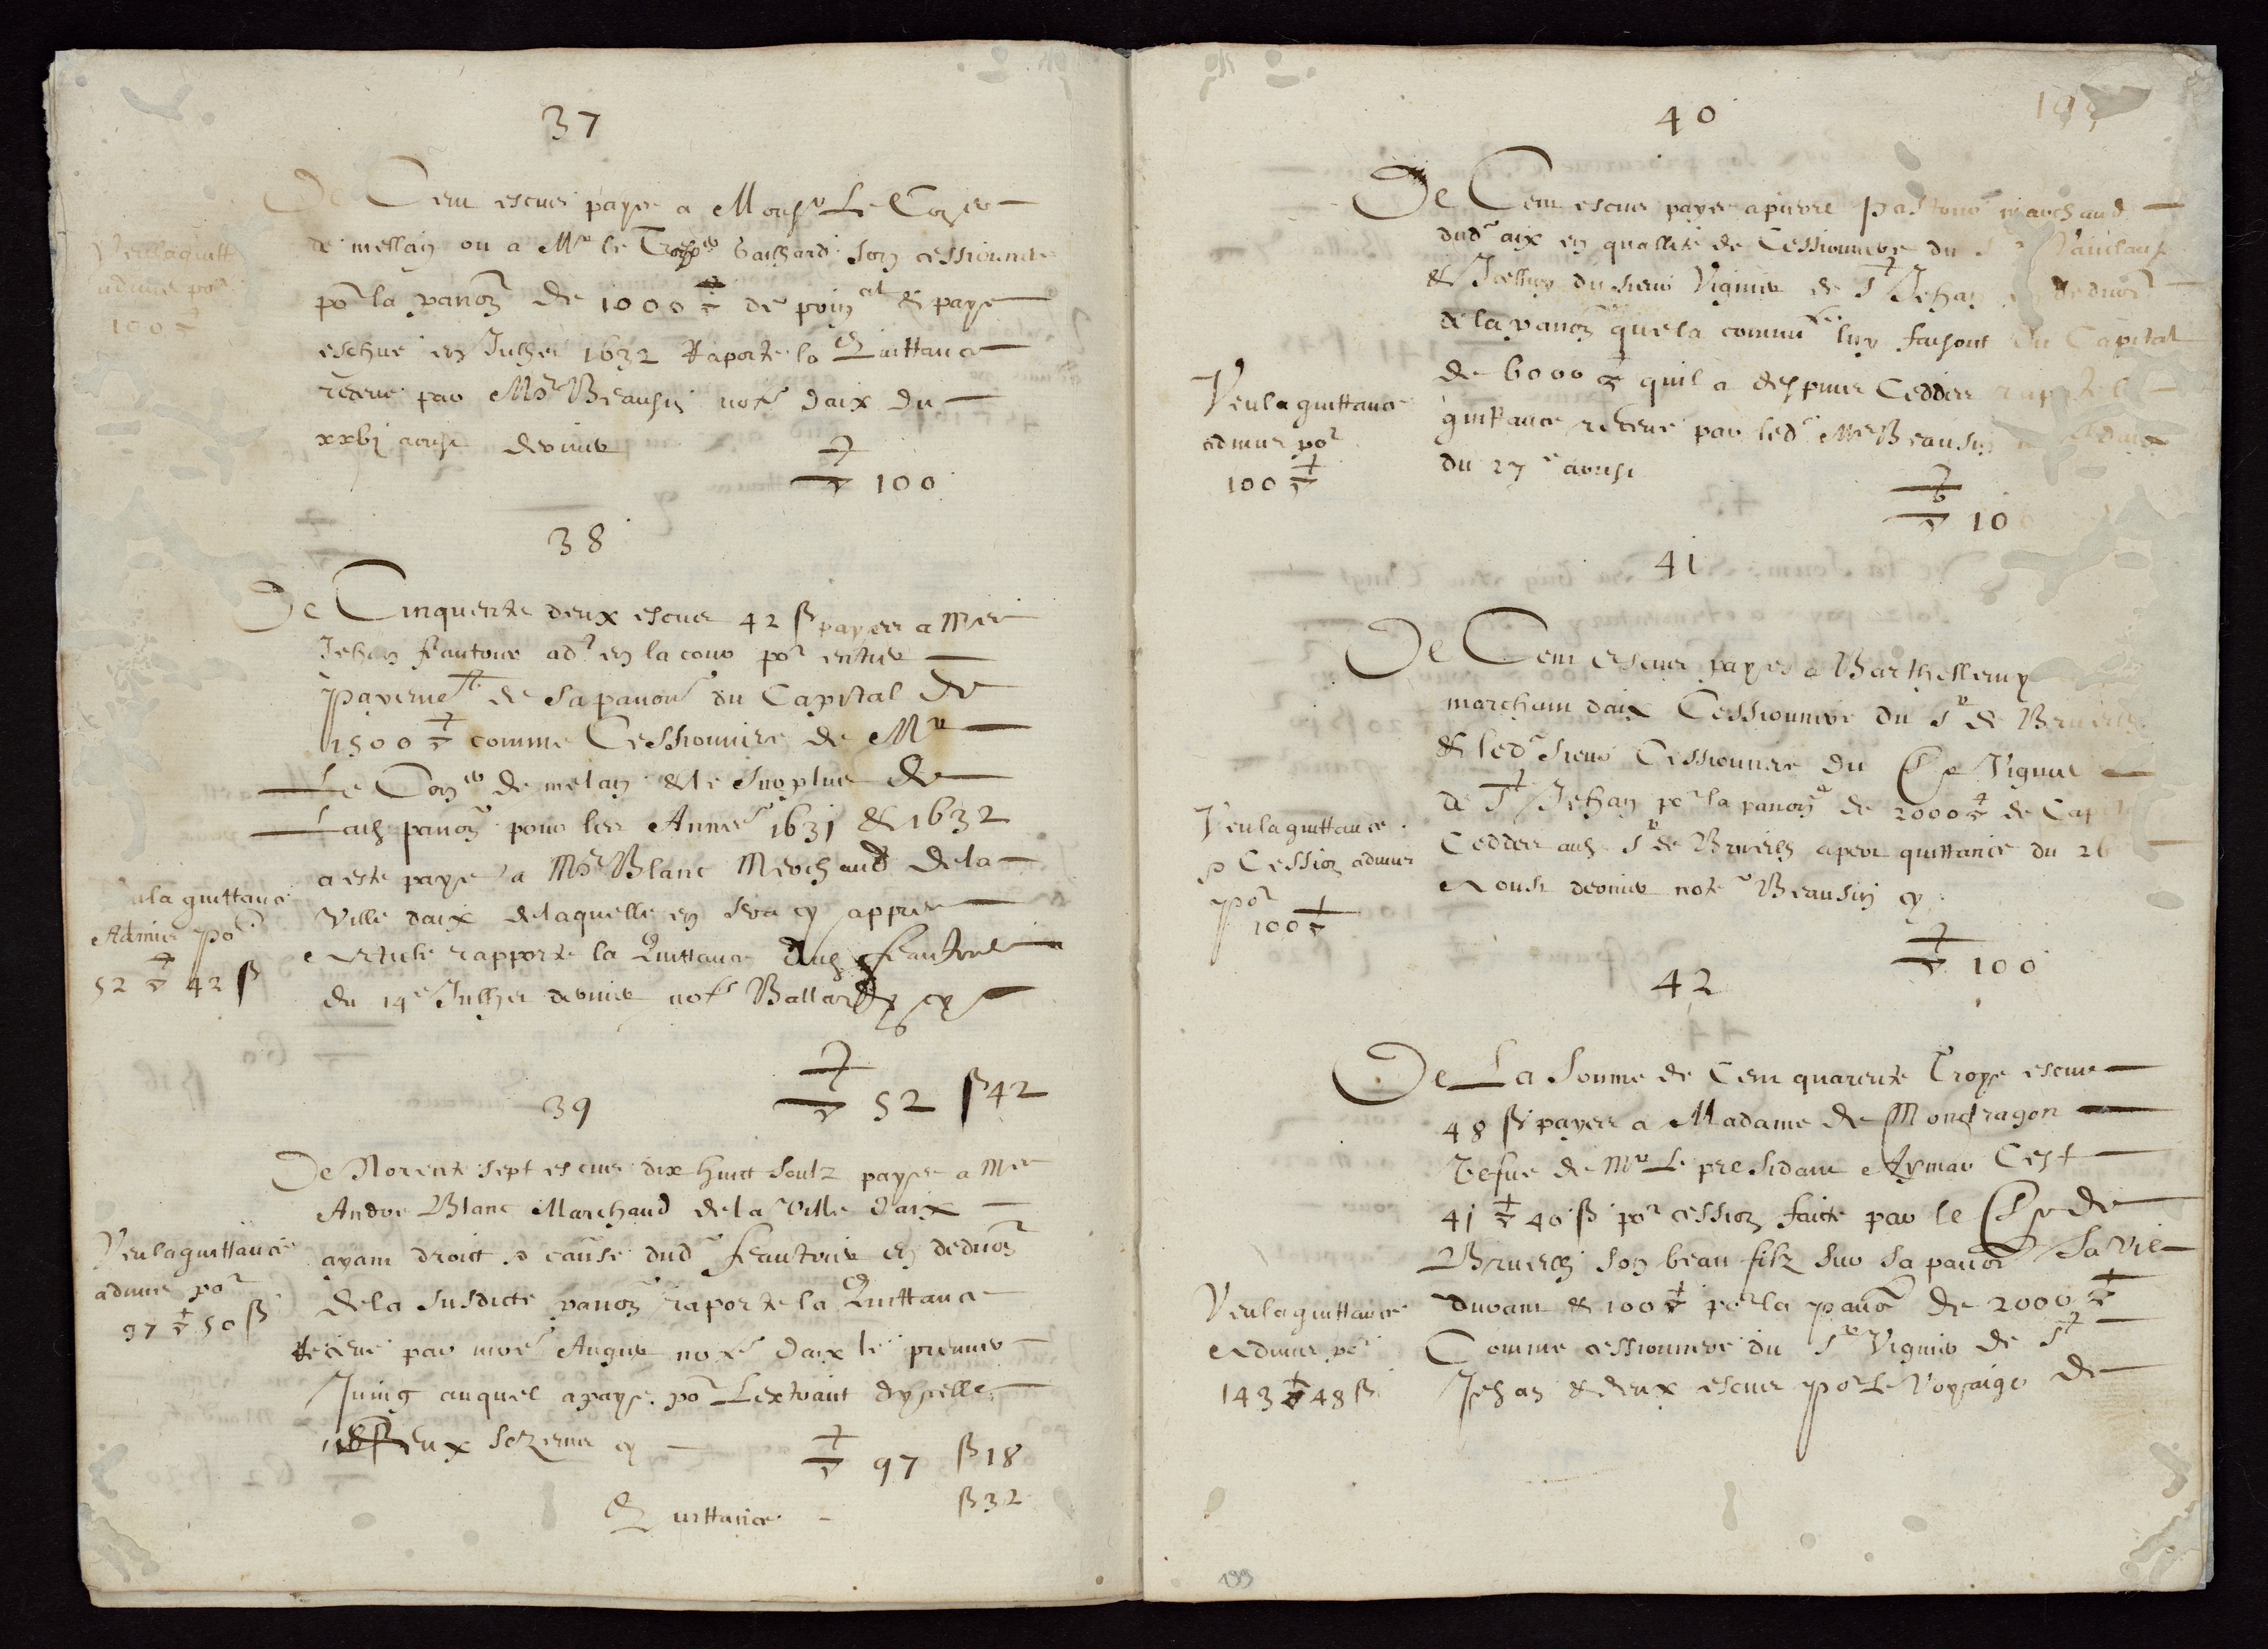 37
De Cent escus payes a Monsr Le Con.er
de mellan ou a Mr le Gailhard son cessionnere
por la panõn de 1000 ▽ de prin.al & paye
escheue en Julhet 1632 Raporte la Quittance
receue par Mre Beausin notre daix du
xxbj aoust dernier
▽ 100
Veu la quitt
admis por
100 ▽
38
De Cinquente deux escus 42 ß payes a Mes
Jehan feautrier adt en la cour por entier
payemet de sa panon du Capital de
1500 ▽ comme Cessionnire de Mr
Le Con.er de melan & le surplus de
Lad panon pour les Annes 1631 & 1632
a este paye a Mre Blanc Merchand de la
Ville daix de laquelle en sera cy appres
Article rapporte la Quittance dud feautrier
du 14e Julhet dernier notre Ballardy cy
▽ 52 ß 42
la quittance
Admis por
52 ▽ 42 ß
39
De Norente sept escus dix huict soulz payes a Mes
Andre Blanc Marchand de la Ville daix
ayant droict & cause dud feautrier en deduon
de la susdicte panon raporte la Quittance
Receue par moe Augier notre daix le premier
Juing auquel a paye por Lextraict dycelle
eux sezemes cy
▽ 97 ß 18
Quittance - ß 32
Veu la quittance
admis por
97 ▽ 50 ß
40
De Cent escus payes a pierre pastour marchand
dud aix en quallite de Cessionnere du Sr Vauclaux
& Icelluy du sieur Viguier de St Jehan en deduon
de la panon que la commute luy faisont du Capital
de 6000 ▽ quil a despuis Cedder rapte la
quittance receue par led Mre Beausin daix
du 27e aoust
▽ 100
Veu la quittance
admis por
100 ▽
41
De Cent escus payes a Barthellemy
marchant daix Cessionnere du Sr de Bruerès
& led sieur Cessionnere du Sr Viguier
de St Jehan por la panon de 2000 ▽ de Capital
Cedder aud Sr de Bruerès apert quittance du 26
Aoust dernier notre Beausin cy
▽ 100
Veu la quittance
& Cession admis
por
100 ▽
42
De La Somme de Cent quarente Troys escus
48 ß payes a Madame de Mondragon
Vefue de Mr Le presidant Aymar Cest
41 ▽ 40 ß por cession faicte par le Sr de
Bruerès son beau filz sur sa panon sa vie
durant & 100 ▽ por la panon de 2000 ▽
Comme cessionnere du Sr Viguier de St
Jehan & deux escus por Le Voyaige de
Veu la quittance
Admis por
143 ▽ 48 ß
199